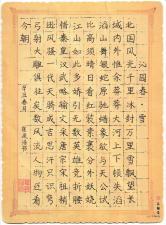 沁园春·雪
北国风光千里冰封万里雪飘望长
城内外惟余莽莽大河上下顿失滔
滔山舞银蛇原驰蜡象欲与天公试
比高须晴日看红装素裹分外妖娆
江山如此多娇引无数英雄竞折腰
惜秦皇汉武略输文采唐宗宋祖稍
逊风骚一代天骄成吉思汗只识弯
弓射大雕俱往矣数风流人物还看
今朝